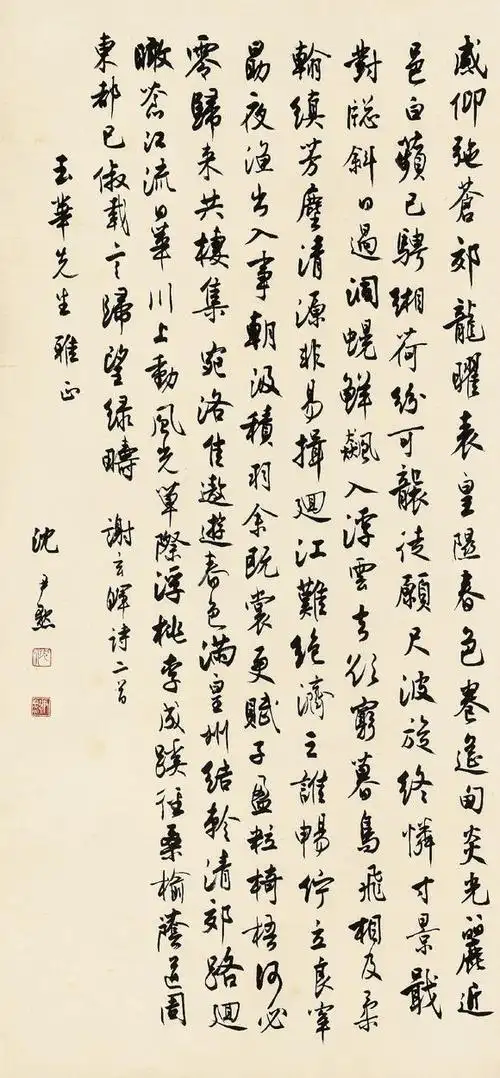 威仰弛蒼郊龍曜表皇隰春色卷遙甸炎光麗近
邑白蘋已騁緗荷紛可襲徒願尺波旋終憐寸景戢
對牕斜日過洞幌鮮飆入浮雲去欲窮暮鳥飛相及柔
翰縝芳塵清源非易揖迴江難絕濟云誰暢佇立良宰
勗夜漁出入事朝汲積羽余既裳更賦子盈粒椅梧何必
零歸来共棲集 宛洛佳遨遊春色滿皇州結軫清郊路迴
瞰蒼江流日華川上動風光草際浮桃李成蹊徑桑榆蔭道周
東都已俶載言歸望綠疇 謝玄暉詩二首
玉華先生雅正
沈尹默